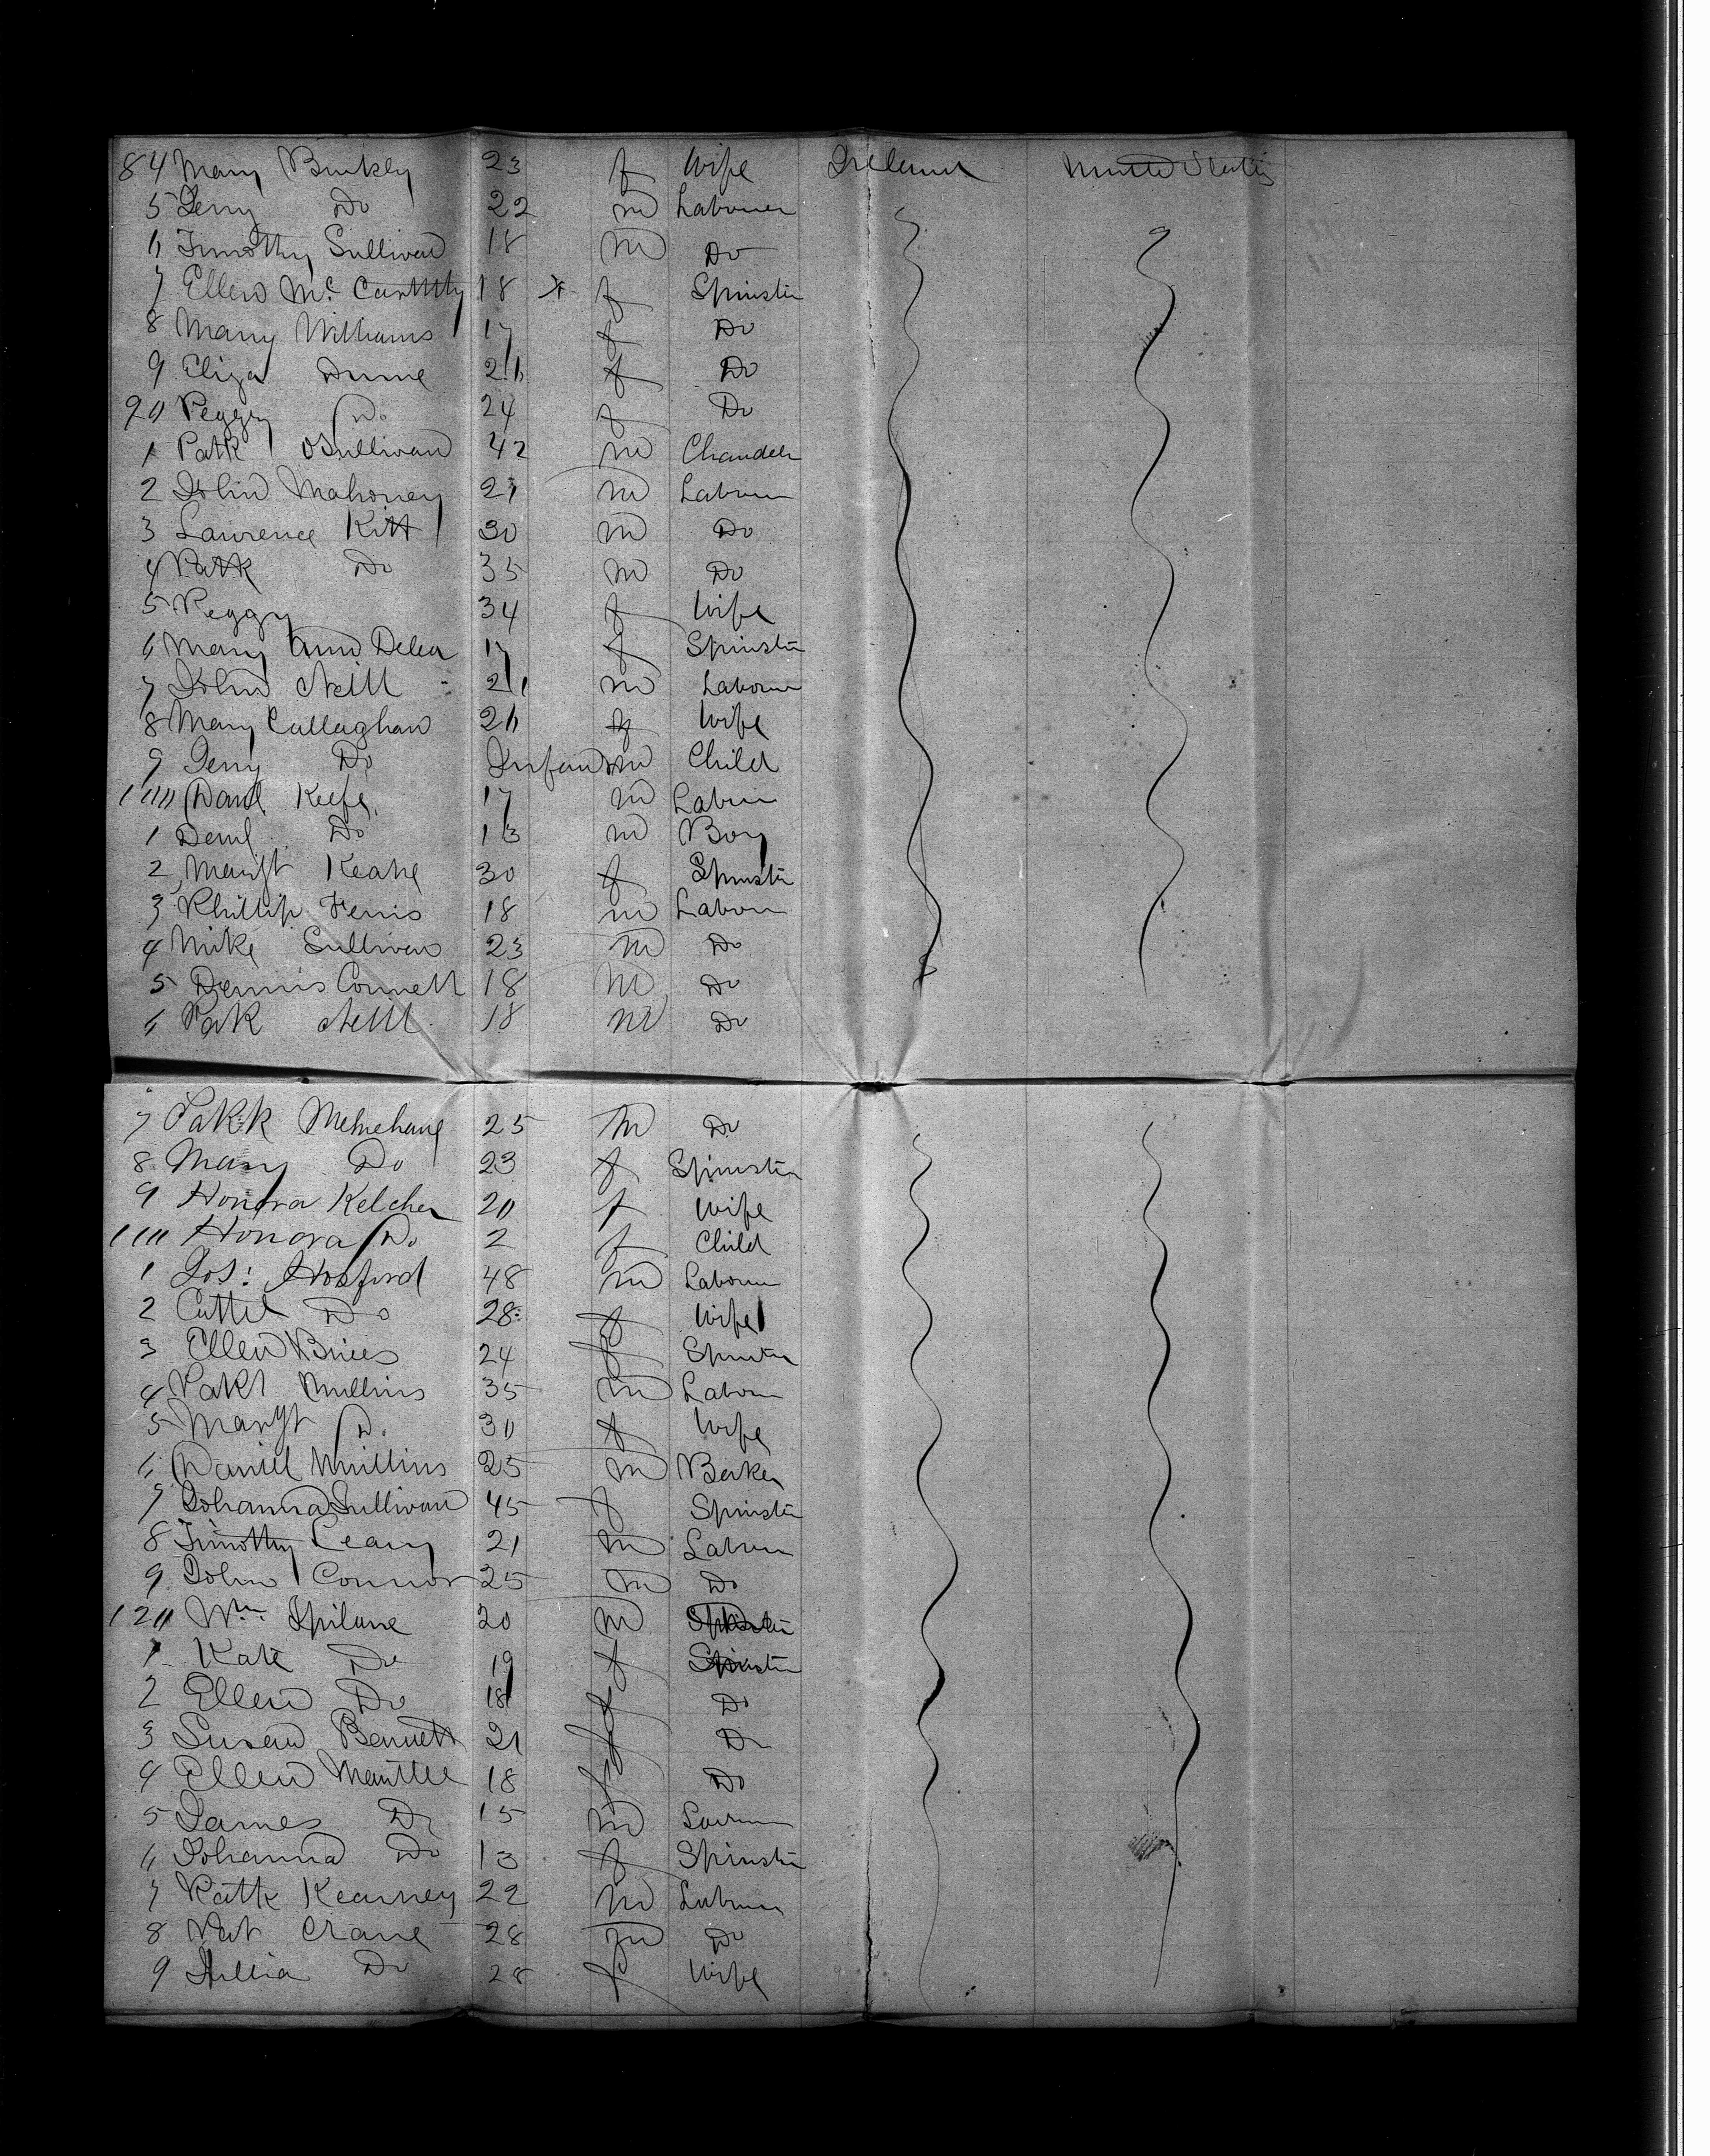 84 Mary Buckley 23 f Wife Ireland United States
5 Jerry Do 22 m Labourer
6 Timothy Sullivan 18 m Do
7 Ellen Mc Carthy 18 f Spinster
8 Mary Williams 17 f Do
9 Eliza Dunne 20 f Do
90 Peggy Do 24 f Do
1 Patk O'Sullivan 42 m Chandler
2 John Mahoney 21 m Labourer
3 Lawrence Kitt 30 m Do
4 Patk Do 35 m Do
5 Peggy 34 f Wife
6 Mary Ann Delea 17 f Spinster
7 John Neill 20 m Labourer
8 Mary Callaghan 20 f Wife
9 Jerry Do Infant m Child
100 Danl Keefe 17 m Labourer
1 Danl Do 13 m Boy
2 Margt Keane 30 f Spinster
3 Phillip Ferris 18 m Labourer
4 Mike Sullivan 23 m Do
5 Dennis Connell 18 m Do
6 Patk Neill 18 m Do
7 Patk 25 m Do
8 Mary Do 23 f Spinster
9 Honora Kelcher 20 f Wife
110 Honora Do 2 f Child
1 Jos: Hosford 48 m Labourer
2 Do 28 f Wife
3 Ellen 24 f Spinster
4 Pakt Mullins 35 m Labourer
5 Margt Do 30 f Wife
6 Daniel Mullins 25 m Baker
7 Johanna Sullivan 45 f Spinster
8 Timothy Leary 21 m Labourer
9 John Connor 25 m Do
120 Wm Spilane 20 m
1 Kate Do 19 f Spinster
2 Ellen Do 18 f Do
3 Susan Bennett 21 f Do
4 Ellen 18 f Do
5 James Do 15 m Labourer
6 Johanna Do 13 f Spinster
7 Patk Kearney 22 m Labourer
8 Pat Crane 28 m Do
9 Do 28 f Wife